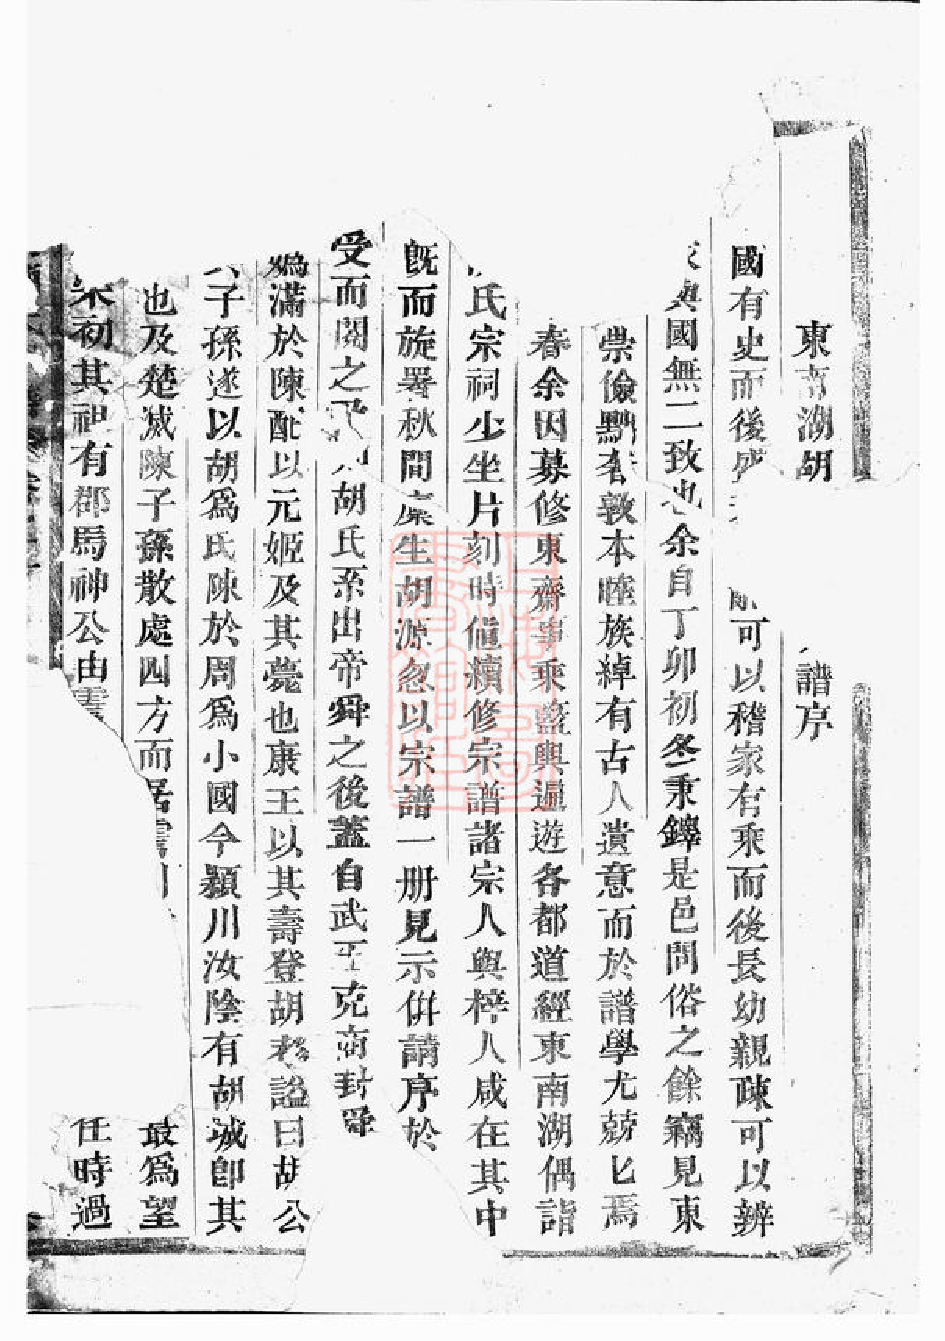 東南湖胡譜序
國有史而後可以稽家有乘而後長幼親疎可以辨
與國無二致也余自丁卯初冬秉鐸是邑問俗之餘竊見東
崇儉黜奢敦本睦族綽有古人遺意而於譜學尤兢匕焉
春余因募修東齋事乘籃輿遍遊各都道經東南湖偶詣
氏宗祠少坐片刻時值續修宗譜諸宗人與梓人咸在其中
旣而旋署秋間廩生胡源忽以宗譜一册見示倂請序於
受而閱之胡氏系出帝舜之後蓋自武王克商封舜
嬀滿於陳配以元姬及其薨也康王以其壽登胡耈謚曰胡公
子孫遂以胡爲氏陳於周爲小國今潁川汝陰有胡城卽其
也及楚滅陳子孫散處四方而居最爲望
宋初其祖有郡馬神公由任時過